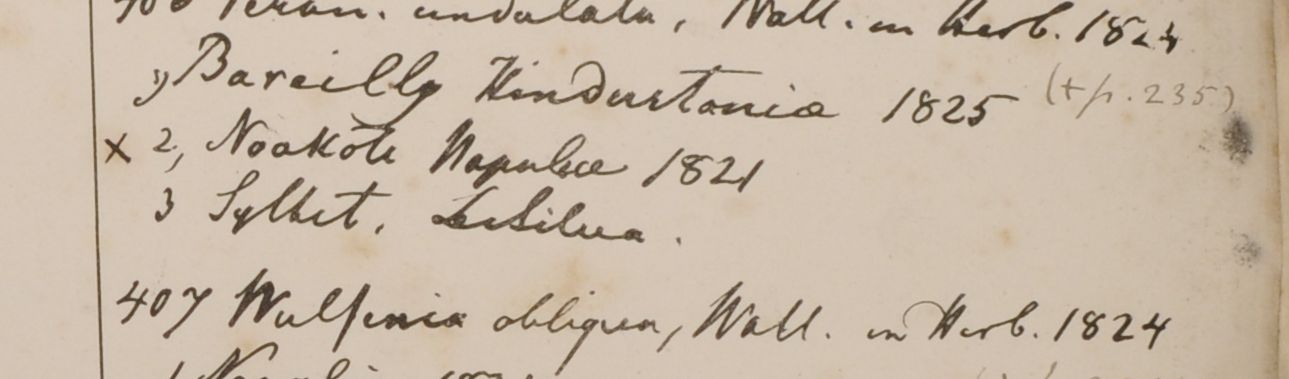 406 undulata, Wall. in Herb. 1824
1, Bareilly Hindustaniæ 1825 (+p. 235)
x 2, Noakote Napaliæ 1821
3 Sylhet. DeSilva.
407 Wulfenia obliqua, Wall. in Herb. 1824